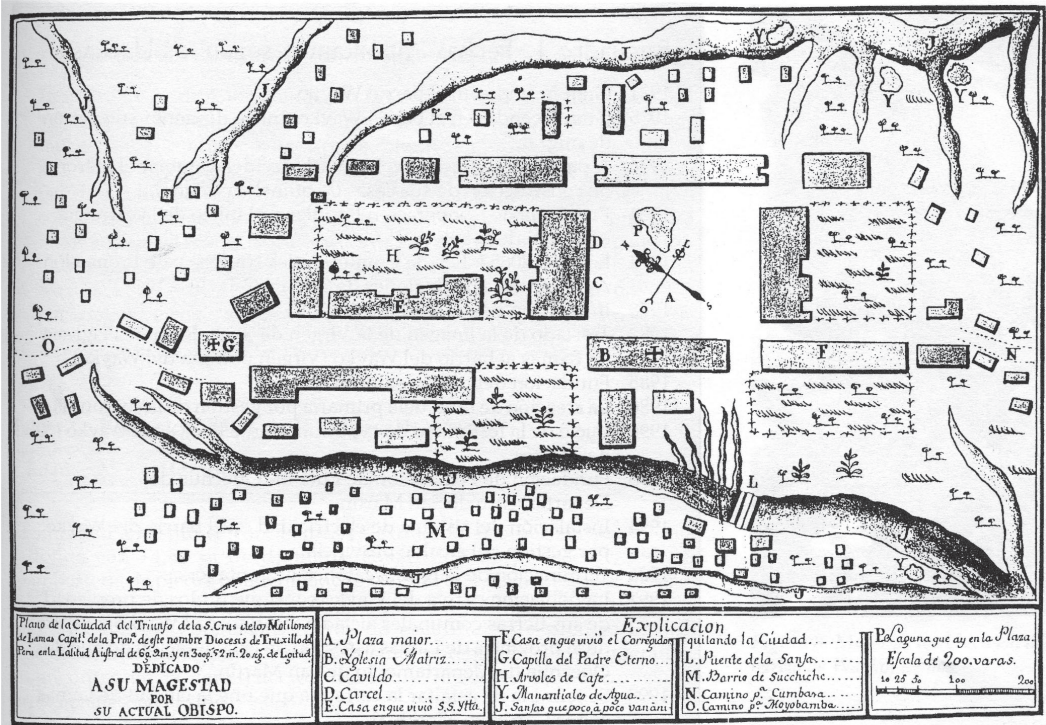 J
J
J
Y
J
Y
Y
H
E
D
C
P
4
L
A
O
S
O
G
B
F
N
J
L
M
J
Y
J
J
Plano de la Ciudad del Triunfo de la S. Crus delos Motilones
de Lamas Capit.l de la Prov.a de este nombre Diocesis de Truxillo de
Peru en la Latitud Austral de 6g. 9m. y en 300g. 52m. 20sg. de Lgitud.
DEDICADO
A SU MAGESTAD
POR
SU ACTUAL OBISPO.
Explicacion
A. Plaza maior
B. Yglesia Matriz
C. Cavildo
D. Carcel
E. Casa enque vivió S.S. Yttã
F. Casa enque vivió el Corregidor
G. Capilla del Padre Eterno
H. Arvoles de Café
Y. Manantiales de Agua
J. Sanjas que poco, à poco van ani
quilando la Ciudad
L. Puente de la Sanja
M. Barrio de Succhiche
N. Camino p.a Cumbasa
O. Camino p.a Moyobamba
P. Laguna que ay en la Plaza.
Escala de 200. varas.
10 25 50 100 200